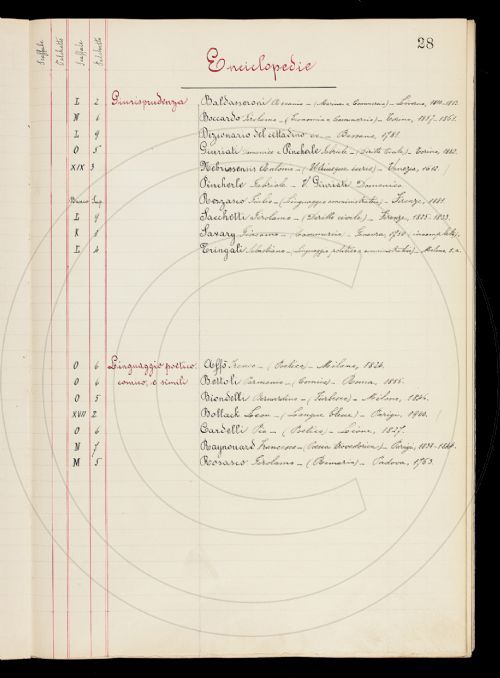 28
Enciclopedie
Scaffale Palchetto Scaffale Palchetto
L 2 Giurisprudenza Baldasseroni Ascanio – (Marina e Commercio) – Livorno, 1810-1813.
N 6 Boccardo Girolamo – (Economia e Commercio) – Torino, 1857-1861.
L 9 Dizionario del cittadino – Bassano, 1781.
O 5 Giuriati Domenico e Pincherle Gabriele – (Diritto Civile) – Torino, 1882.
XIX 3 Nebrissensis Antonio – (Utriusque iuris) – Venezia, 1612. /
Pincherle Gabriele – V. Giuriati Domenico
Rezasco Giulio – (Linguaggio amministrativo) – Firenze, 1881.
L 9 Sacchetti Girolamo – (Diritto civile) – Firenze, 1825-1833.
K Savary – (Commercio) – Ginevra, 1750 (incompleto).
L 4 Tringali Sebastiano – (Linguaggio politico e amministrativo) – Milano s.a.
O 6 Linguaggio poetico Affò Ireneo – (Poetica) – Milano, 1824.
O 6 comico, e simili Bertoli Parmenio – (Comico) – Roma,
O 5 Biondelli Bernardino – (Furbesco) – Milano, 1846.
XVII 2 Bollack Leon – (Langue bleue) – Parigi, 1900. /
O 6 Gardelli Pio – (Poetico) – 1827.
N 7 Raynouard Francesco – (Poesia trovadorica) – Parigi, 1838-1844.
M 5 Rosasco Girolamo – (Rimario) – Padova, 1763.